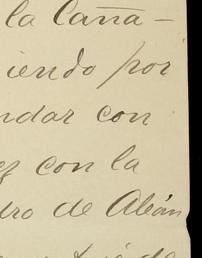 la Caña-
iendo por
ndar con
ez con la
dro de Alcán